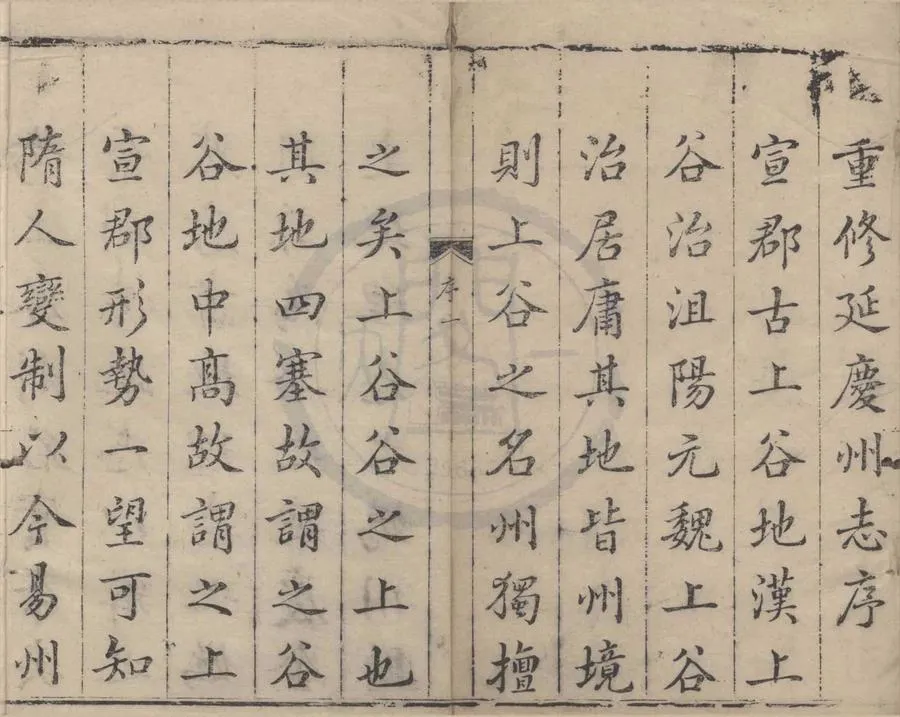 重修延慶州志序
宣郡古上谷地漢上
谷治沮陽元魏上谷
治居庸其地皆州境
則上谷之名州獨擅
序一
之矣上谷谷之上也
其地四塞故謂之谷
谷地中高故謂之上
宣郡形勢一望可知
隋人變制以今易州